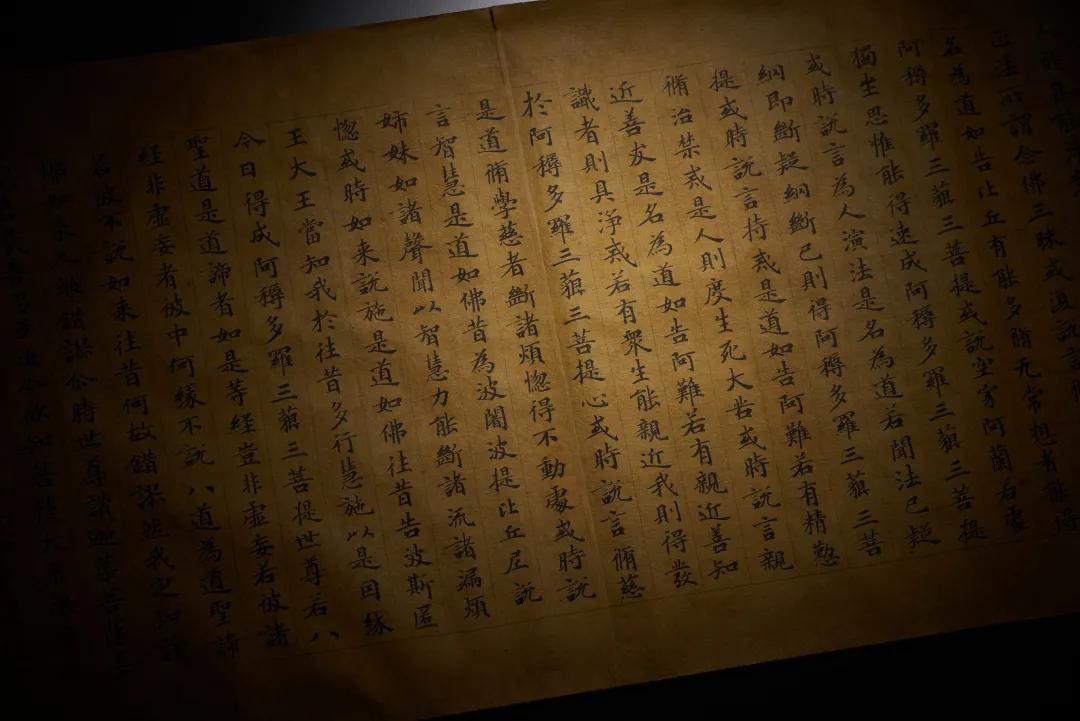 正法所謂念佛三昧或復說言
名為道如告比丘有能多脩无常想者能得
阿耨多羅三藐三菩提或說空家阿蘭若處
獨坐思惟能得速成阿耨多羅三藐三菩提
或時說言為人演法是名為道若聞法已疑
綱即斷疑綱斷已則得阿耨多羅三藐三菩
提或時說言持戒是道如告阿難若有精懃
脩治禁戒是人則度生死大苦或時說言親
近善友是名為道如告阿難若有親近善知
識者則具淨戒若有衆生能親近我則得發
於阿耨多羅三藐三菩提心或時說言脩慈
是道脩學慈者斷諸煩惚得不動處或時說
言智慧是道如佛昔為波闍波提比丘尼說
姉妹如諸聲聞以智慧力能斷諸流諸漏煩
惚或時如来說施是道如佛往昔告波斯匿
王大王當知我於往昔多行慧施以是因緣
今日得成阿耨多羅三藐三菩提世尊若八
聖道是道諦者如是等経豈非虛妄若彼諸
経非虛妄者彼中何緣不說八道為道聖諦
若彼不說如来往昔何故錯謬然我定知諸
佛如来久離錯謬尒時世尊讚迦葉菩薩